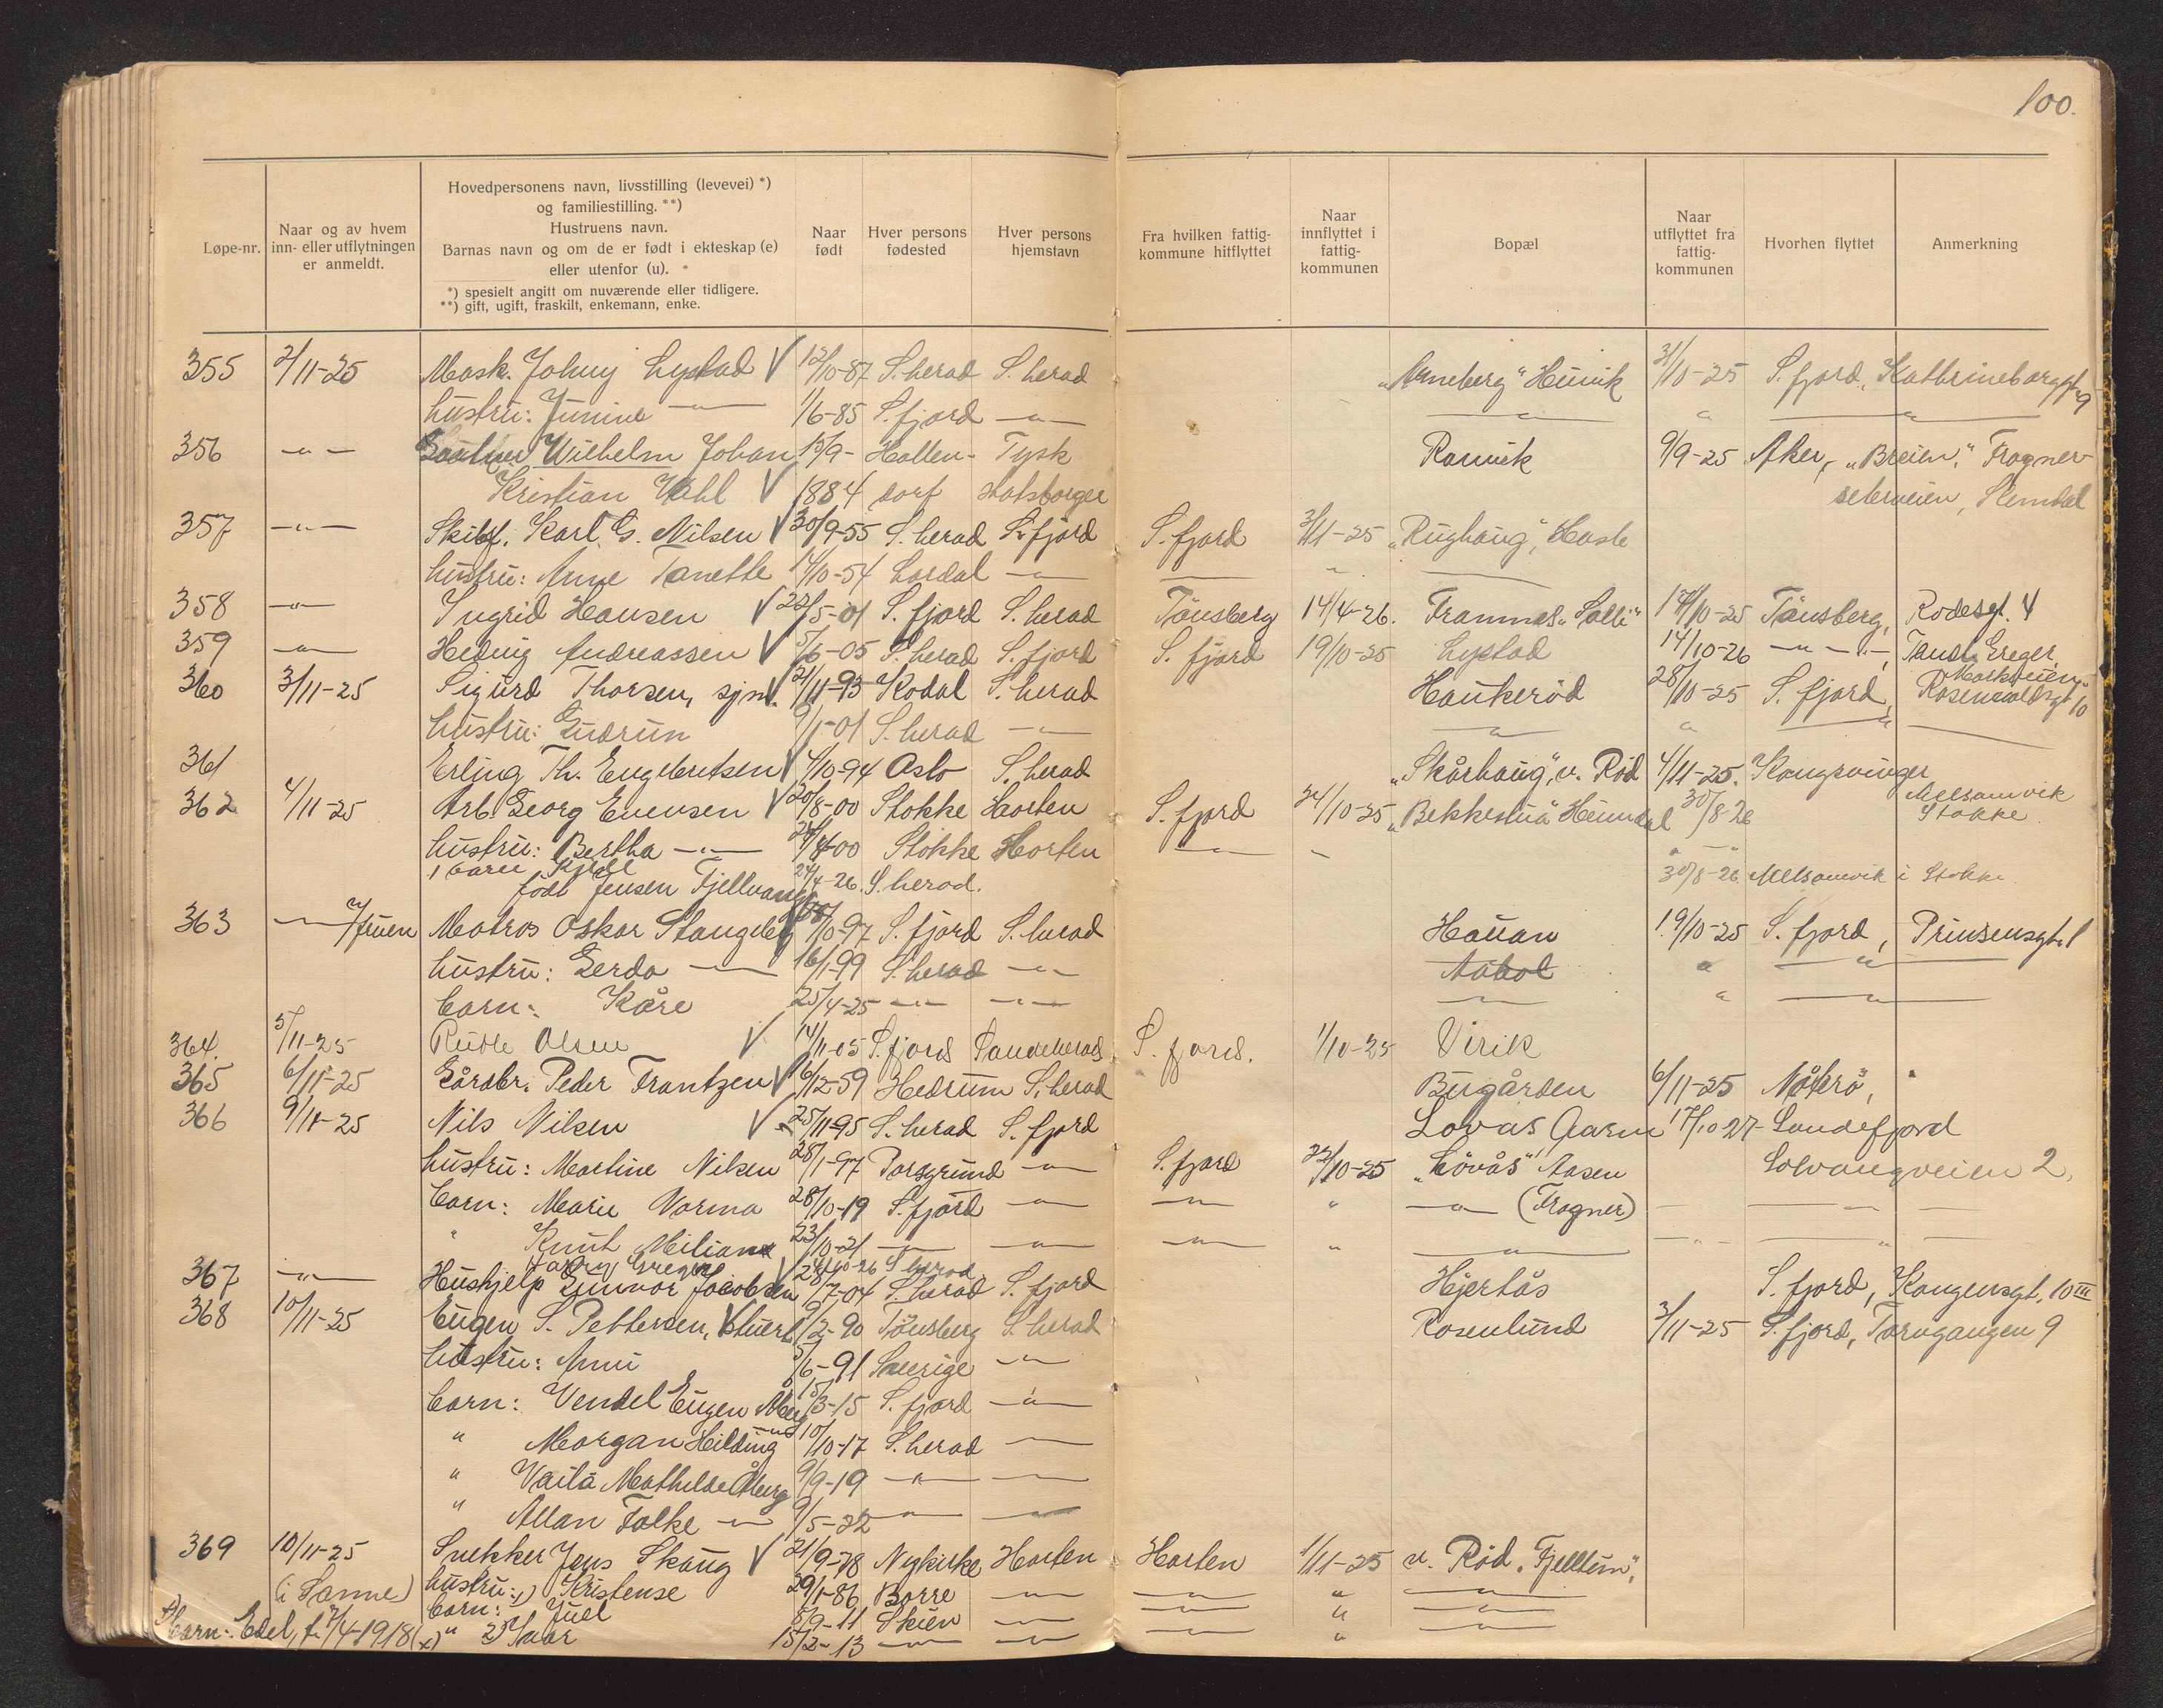 100.
Løpe-nr.
Naar og av hvem
inn- eller utflytningen
er anmeldt.
Hovedpersonens navn, livsstilling (levevei) *)
og familiestilling. **)
Hustruens navn.
Barnas navn og om de er født i ekteskap (e)
eller utenfor (u).
*) spesielt angitt om nuværende eller tidligere.
**) gift, ugift, fraskilt, enkemann, enke.
Naar
født
Hver persons
fødested
Hver persons
hjemstavn
Fra hvilken fattig-
kommune hitflyttet
Naar
innflyttet i
fattig-
kommunen
Bopæl
Naar
utflyttet fra
fattig-
kommunen
Hvorhen flyttet
Anmerkning
355 2/11-25 Mask. Johny Lystad √ 12/10-87 S. herad S. herad "Arneberg" Hunik 31/10-25 S. fjord, Kathrineborggt. 9
hustru: Junine —"— 1/6-85 S. fjord —"— —"— " —"—
356 —"— Wilhelm Johan 15/9- Hallen- Tysk Ranvik 9/9-25 Aker, "Breien," Frogner-
Kristian Wahl √ 1884 dorf statsborger seterveien, Slemdal
357 —"— Skibsf. Karl G. Nilsen √ 30/9-55 S. herad S. fjord S. fjord 3/11-25 "Rughaug", Hasle
hustru: Anne Tanette 14/10-54 Lardal —"— — " —
358 —"— Ingrid Hansen √ 22/5-01 S. fjord S. herad Tönsberg 14/4-26. Framnes "Solli" 17/10-25 Tönsberg, Rodesgt. 4
359 —"— Hedvig Andreassen √ 5/6-05 S. herad S. fjord S. fjord 19/10-25 Lystad 14/10-26 —"— —"—, Tandl. Greger
360 3/11-25 Sigurd Thorsen, sjm. √ 21/11-93 Kodal S. herad Haukeröd 28/10-25 S. fjord, Rosenvoldsgt. 10
hustru: Gudrun 9/1-01 S. herad —"— —"— " —"—
361 Erling Th. Engebretsen √ 4/10-94 Oslo S. herad "Skårhaug", v. Röd 4/11-25. Kongsvinger
362 4/11-25 Arb. Georg Evensen √ 20/8-00 Stokke Horten S. fjord 24/10-25 "Bekkestua" Heimdal 30/8-26 Melsomvik Stokke
hustru: Bertha —"— 24/4-00 Stokke Horten — —
1 barn Kjell 24/4-26. S. herad. 30/8-26 Melsomvik i Stokke
født Jensen Fjellvang
363 —"— 7/ fruen Matros Oskar Stangeby √ /10-97 S. fjord S. herad Hauan 19/10-25 S. fjord, Prinsensgt. 1
hustru: Gerda —"— 16/1-99 S. herad —"— Aabol " —"—
barn: Kåre 25/4-25 —"— —"— —"— " —"—
364. 5/11-25 Ruth Olsen √ 14/11-05 S. fjord Sandeherad S. fjord. 1/10-25 Virik
365 6/11-25 Gårdbr. Peder Frantzen √ 16/12-59 Hedrum S. herad Bugården 6/11-25 Nöterö,
366 9/11-25 Nils Nilsen √ 25/11-95 S. herad S. fjord Lövås Aasen 17/10 27 Sandefjord
hustru: Martine Nilsen 28/1-97 Porsgrund —"— S. fjord 22/10-25 "Lövås" Aasen Solvangveien 2.
barn: Marie Norma 28/10-19 S. fjord —"— —"— " —"— (Frogner) — —"— —
" Knut Milian 23/10-21 —"— —"— —"— " —"— —"— —"— —
Harry Greger /10-26 S herad
367 —"— Hushjelp Gunvor Jacobsen √ 28/7-04 S. herad S. fjord Hjertås S. fjord, Kongensgt. 10 III
368 10/11-25 Eugen S. Pettersen, √ stuert 9/2-90 Tönsberg S. herad Rosenlund 3/11-25 S. fjord, Torvgangen 9
hustru: Anni 5/6-91 Sverige —"—
barn: Vendel Eugen Åberg 15/3-15 S. fjord —"—
" Morgan Hilding —"— 10/10-17 S. herad —"—
" Vaila Mathilde Åberg 9/9-19 —"— —"—
" Allan Folke —"— 9/5-22 —"— —"—
369 10/11-25 Snekker Jens Skaug √ 21/9-78 Nykirke Horten Horten 1/11-25 v. Röd "Fjelltun",
(i Sanne) hustru: Kristense 29/1-86 Borre —"— —"— " —"—
barn: 1) Juel 8/9-11 Skien —"— —"— " —"—
barn: Edel, f. 7/4-1918 (x) " 2) Ivar 15/2-13 —"— —"— —"— " —"—